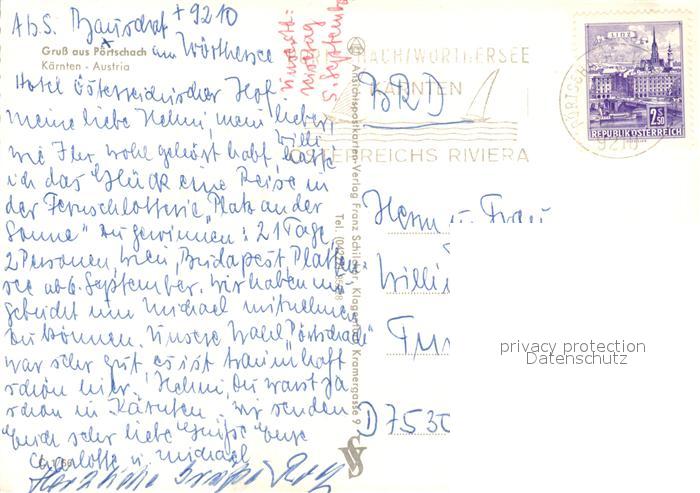 Abs. Bauschat + 9210
Gruß aus Pörtschach am Wörthersee
Kärnten - Austria
Hotel Österreichischer Hof
meine liebe Helmi, mein lieber Willi
wie Ihr wohl gehört habt, hatte
ich das Glück eine Reise in
der Fernsehlotterie "Platz an der
Sonne" zu gewinnen: 21 Tage,
2 Personen, Wien, Budapest, Platten-
see ab 6. September. Wir haben
gebucht um Michael mitnehmen
zu können. Unsere Wahl "Pörtschach"
war sehr gut es ist traumhaft
schön hier. Helmi, Du warst ja
schon in Kärnten. Wir senden
Euch sehr liebe Grüße Eure
Charlotte u. Michael
Herzliche Grüße Rolf
5. September
WÖRTHERSEE
KÄRNTEN
ÖSTERREICHS RIVIERA
BRD
LINZ
2.50
S
REPUBLIK ÖSTERREICH
9210
Ansichtspostkarten-Verlag Franz Schilcher, Klagenfurt, Kramergasse 9
Tel.
Herrn u. Frau
Willi
D 7530
privacy protection
Datenschutz